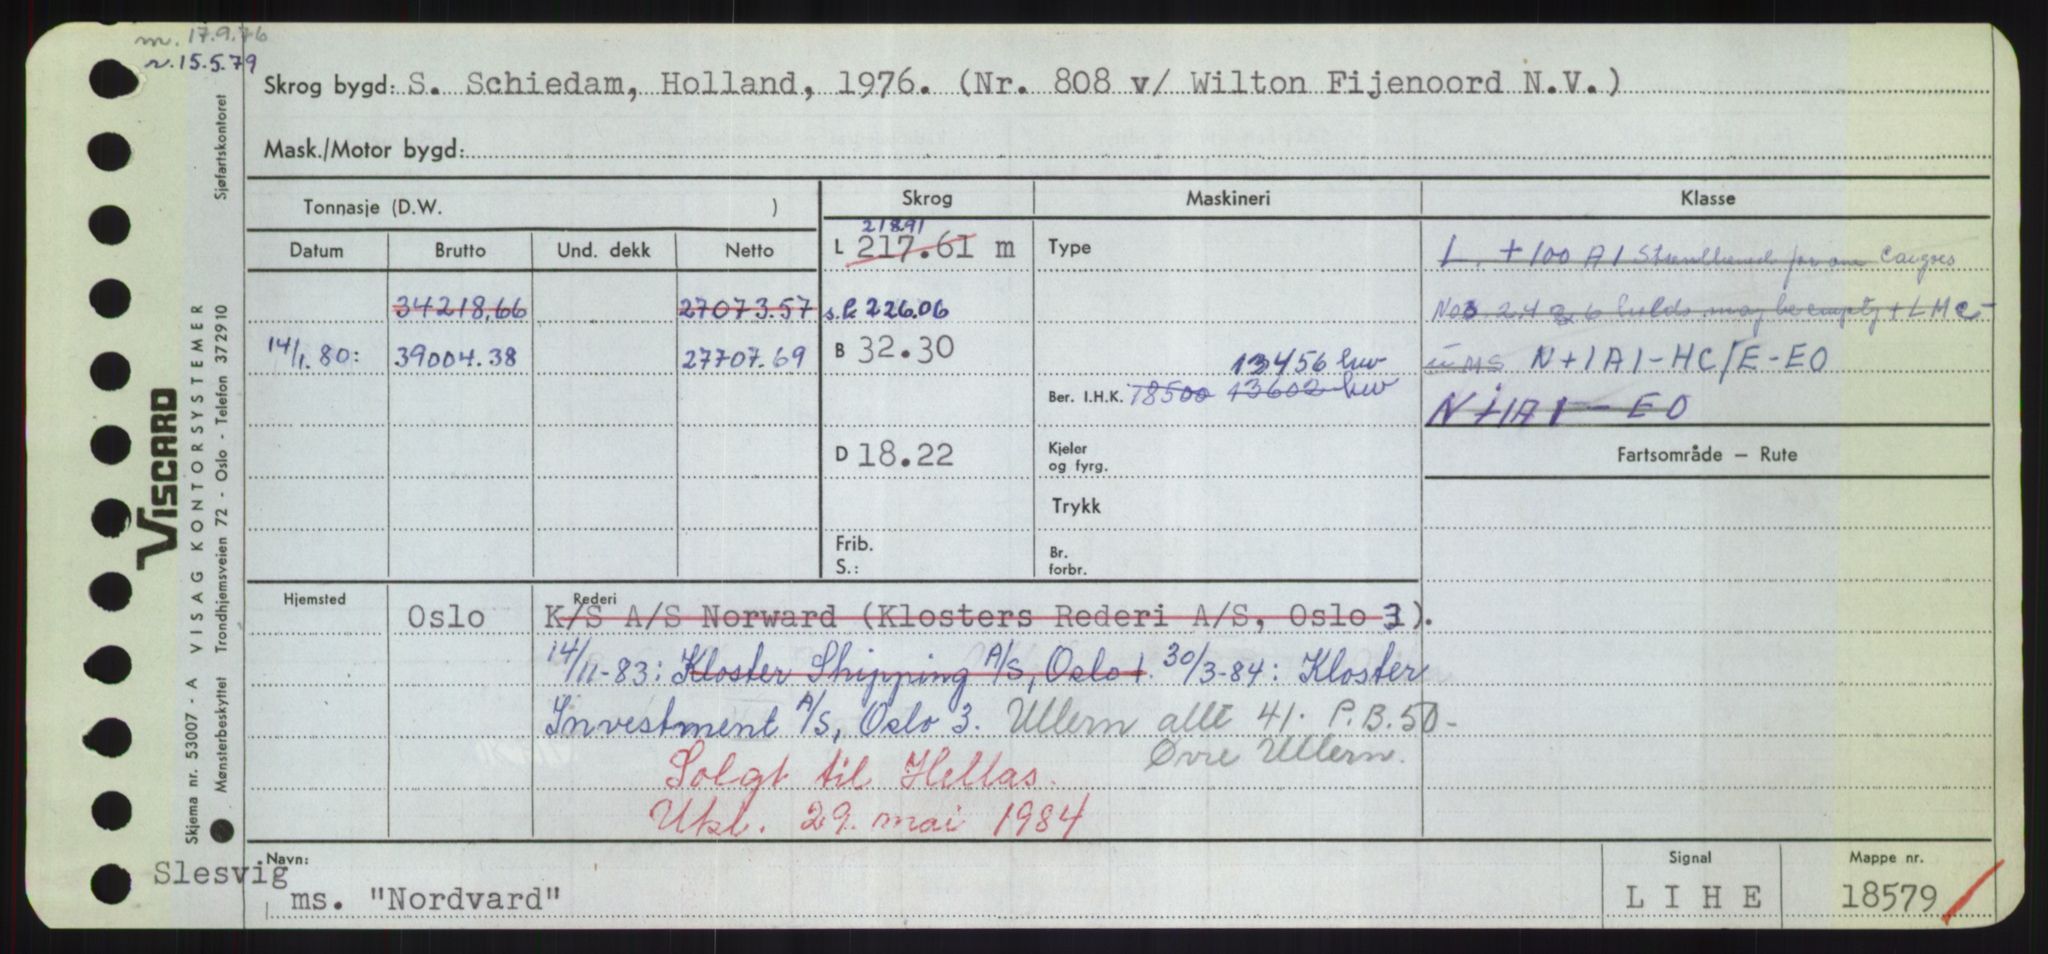 m. 17.9.76
n. 15.5.79
Skrog bygd: S. Schiedam, Holland, 1976. (Nr. 808 v/ Wilton Fijenoord N.V.)
Mask./Motor bygd:
Tonnasje (D.W. )
Skrog Maskineri Klasse
Datum Brutto Und. dekk Netto
21891
L 217.61 m
Type
L. +100 A1 Strenthened for ore cargoes
34218,66 27073.57
s.l. 226.06
Nos 2.4 & 6 holds may be empty + LMC
14/1.80: 39004.38 27707.69
B 32.30
13456 hw
UMS N+1A1-HC/E-EO
Ber. I.H.K. 18500 13602 hw
N+1A1-EO
D 18.22
Kjeler
og fyrg.
Fartsområde – Rute
Trykk
Frib.
S.:
Br.
forbr.
Hjemsted Oslo
Rederi
K/S A/S Norward (Klosters Rederi A/S, Oslo 3).
14/11-83: Kloster Shipping A/S, Oslo 1. 30/3-84: Kloster
Investment A/S, Oslo 3. Ullern allé 41. P.B.50-
Øvre Ullern.
Solgt til Hellas.
Utkl. 29. mai 1984
Slesvig
Navn:
ms. "Nordvard"
Signal
LIHE
Mappe nr.
18579
VISCARD
Skjema nr. 53007 - A VISAG KONTORSYSTEMER
Mønsterbeskyttet Trondhjemsveien 72 - Oslo - Telefon 372910 Sjøfartskontoret